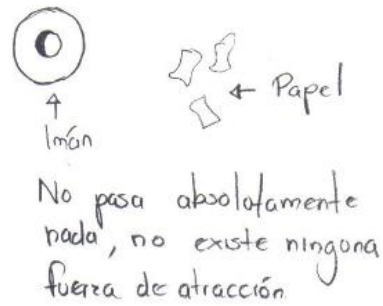 Imán
Papel
No pasa absolutamente
nada, no existe ninguna
fuerza de atracción